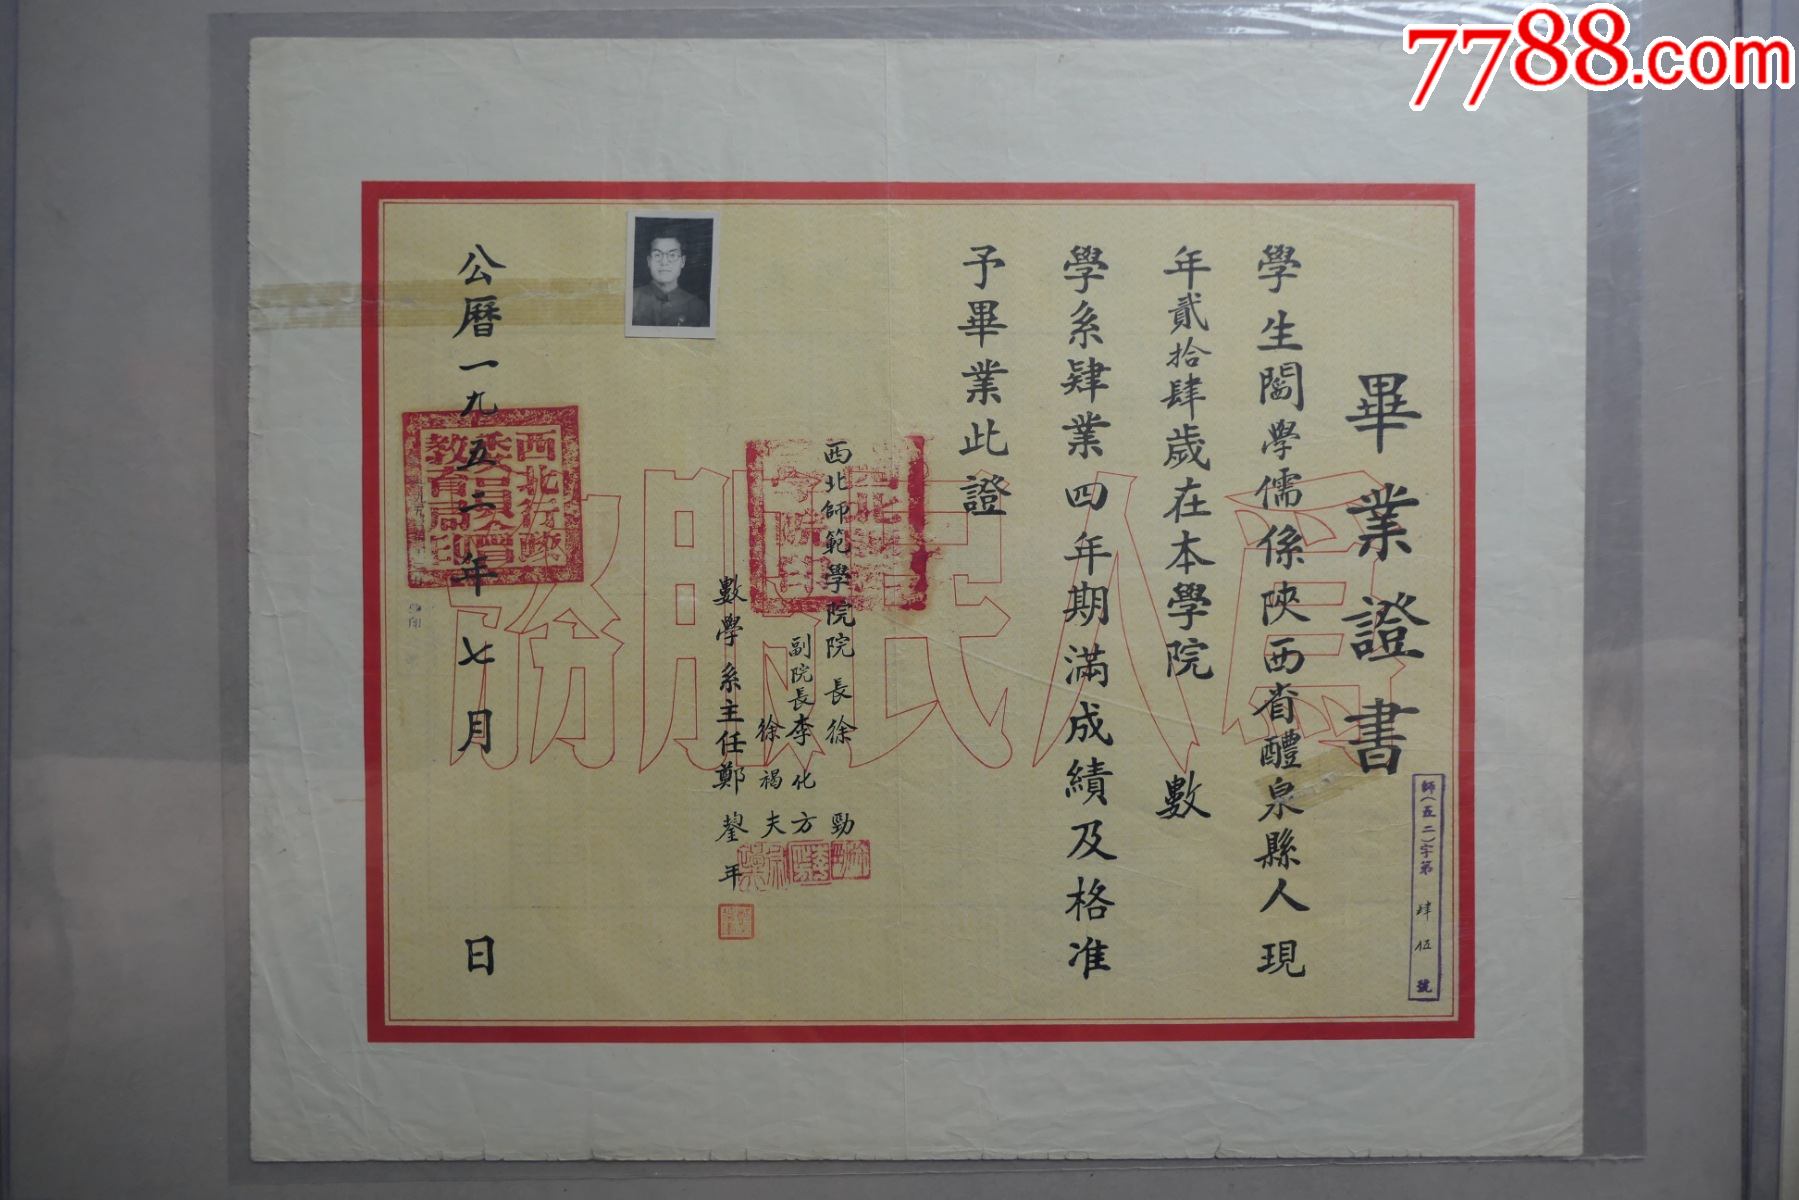 7788.com
畢業證書
學生閻學儒係陝西省醴泉縣人現
年貳拾肆歲在本學院 數
學系肄業四年期滿成績及格准
予畢業此證
西北師範學院院長徐勁
副院長李化方
徐褐夫
數學系主任鄭鋆年
公曆一九五二年七月 日
師(五二)字第肆伍號
為人民服務
西北行政
委員會
教育局印